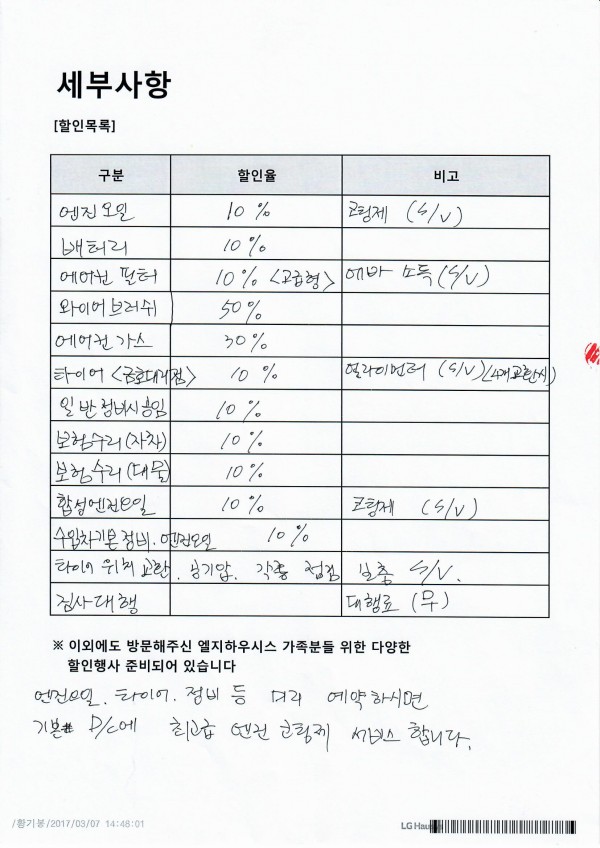 세부사항
[할인목록]
구분 할인율 비고
엔진오일 10% 코팅제 (S/V)
배터리 10%
에어컨 필터 10% <고급형> 에바 소독 (S/V)
와이어브러쉬 50%
에어컨가스 30%
타이어 <금호대리점> 10% 얼라이먼터 (S/V) (4개교환시)
일반정비시공임 10%
보험수리(자차) 10%
보험수리(대물) 10%
합성엔진오일 10% 코팅제 (S/V)
수입차기본정비. 엔진오일 10%
타이어 위치 교환. 공기압. 각종 점검 보충 S/V.
검사대행 대행료 (무)
※ 이외에도 방문해주신 엘지하우시스 가족분들 위한 다양한
할인행사 준비되어 있습니다
엔진오일. 타이어. 정비 등 미리 예약하시면
기본 D/C에 최고급 엔진 코팅제 서비스 합니다.
/황기봉/2017/03/07 14:48:01
LG Hau